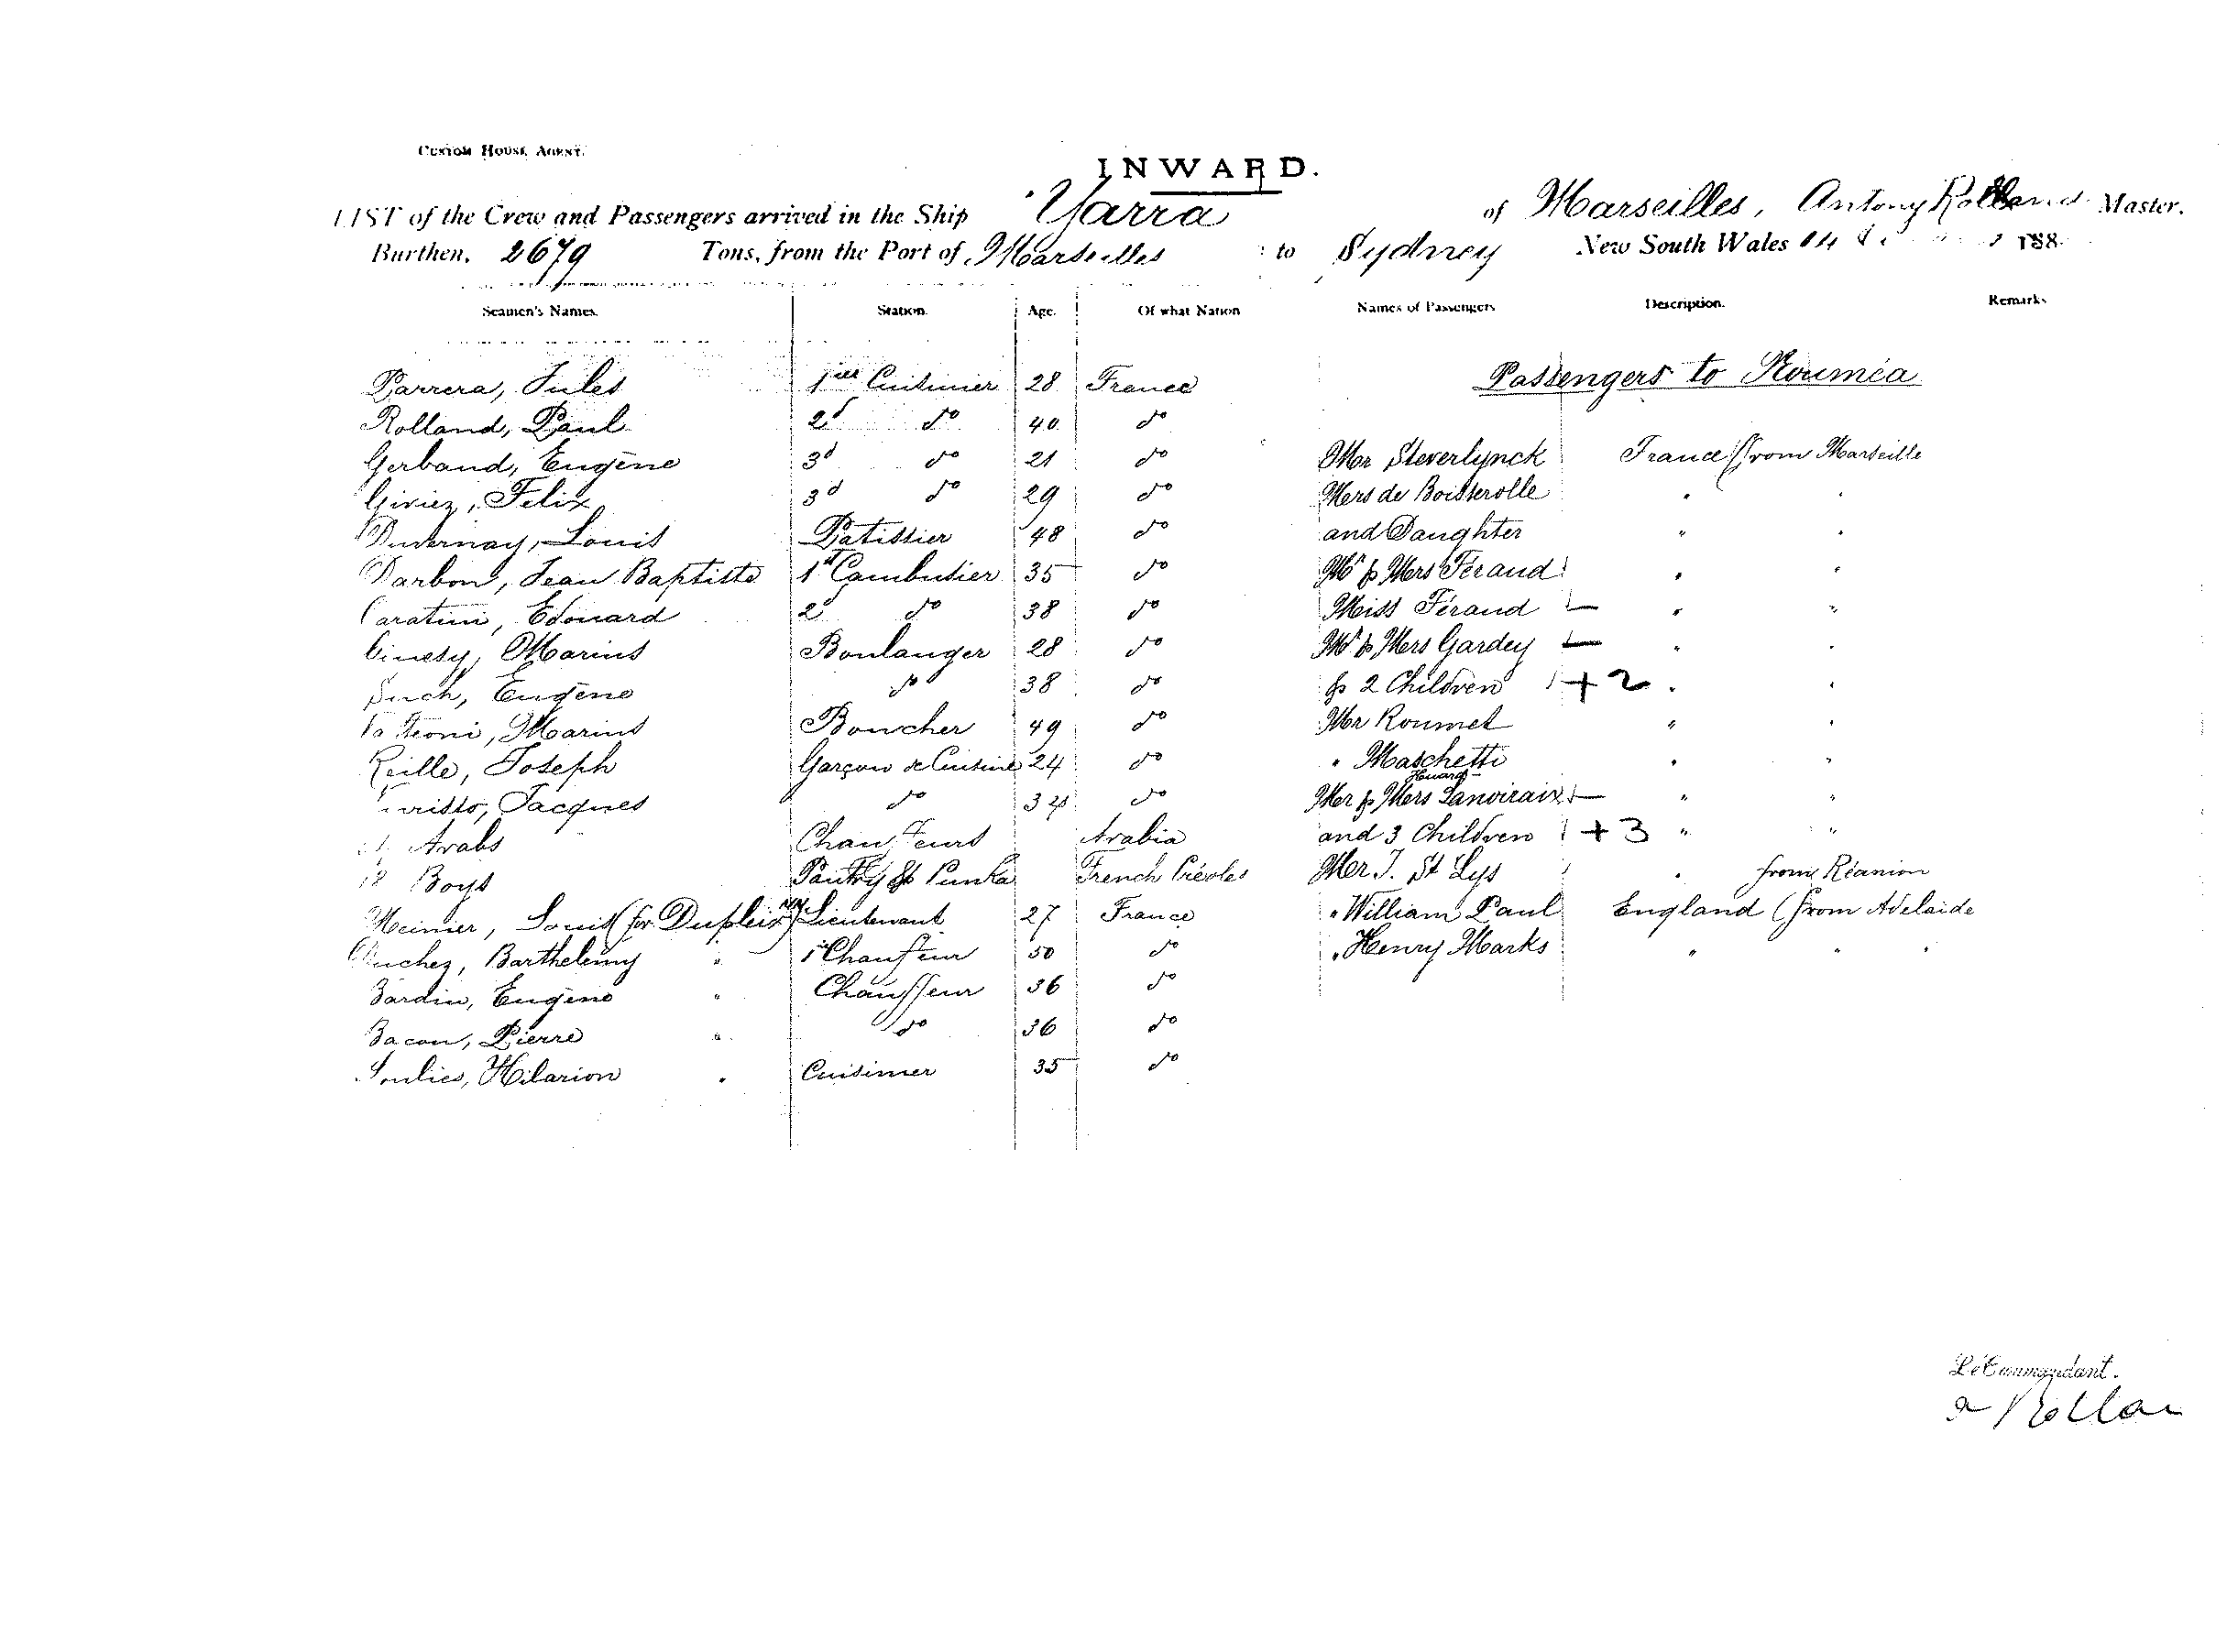 CUSTOM HOUSE AGENT.
INWARD.
LIST of the Crew and Passengers arrived in the Ship Yarra of Marseilles, Antony Rolland Master.
Burthen, 2679 Tons, from the Port of Marseilles to Sydney New South Wales 188
Seamen's Names. Station. Age. Of what Nation Names of Passengers Description. Remarks
Passengers to Nouméa
Parrera, Jules 1ier Cuisinier 28 France
Rolland, Paul 2d do 40 do
Gerband, Eugène 3d do 21 do Mor Steverlynck France (from Marseille
Giriez, Felix 3d do 29 do Mers de Boisserolle " "
Duvernay, Louis Patissier 48 do and Daughter " "
Darbon, Jean Baptiste 1st Cambusier 35 do Mr & Mers Féraud " "
Caratini, Edouard 2d do 38 do Miss Féraud " "
Marius Boulanger 28 do Mr & Mers Gardey " "
Such, Eugène do 38 do & 2 Children + 2 " "
Marius Boucher 49 do Mor Roumet " "
Reille, Joseph Garçon de Cuisine 24 do " Maschetti " "
Jacques do 34 do Mer & Mers Lanoiraix " "
Arabs Chauffeurs Arabia and 3 Children + 3 " "
18 Boys Pantry & Punka French Créoles Mer J. St Lys " from Réunion
Meinier, Louis (for Dupleix) Lieutenant 27 France " William Paul England (from Adelaide
Barthelemy " 1r Chauffeur 50 do " Henry Marks " " "
Jardin, Eugène " Chauffeur 36 do
Bacon, Pierre " do 36 do
Soulies, Hilarion " Cuisinier 35 do
Le Commandant.
a Rollan